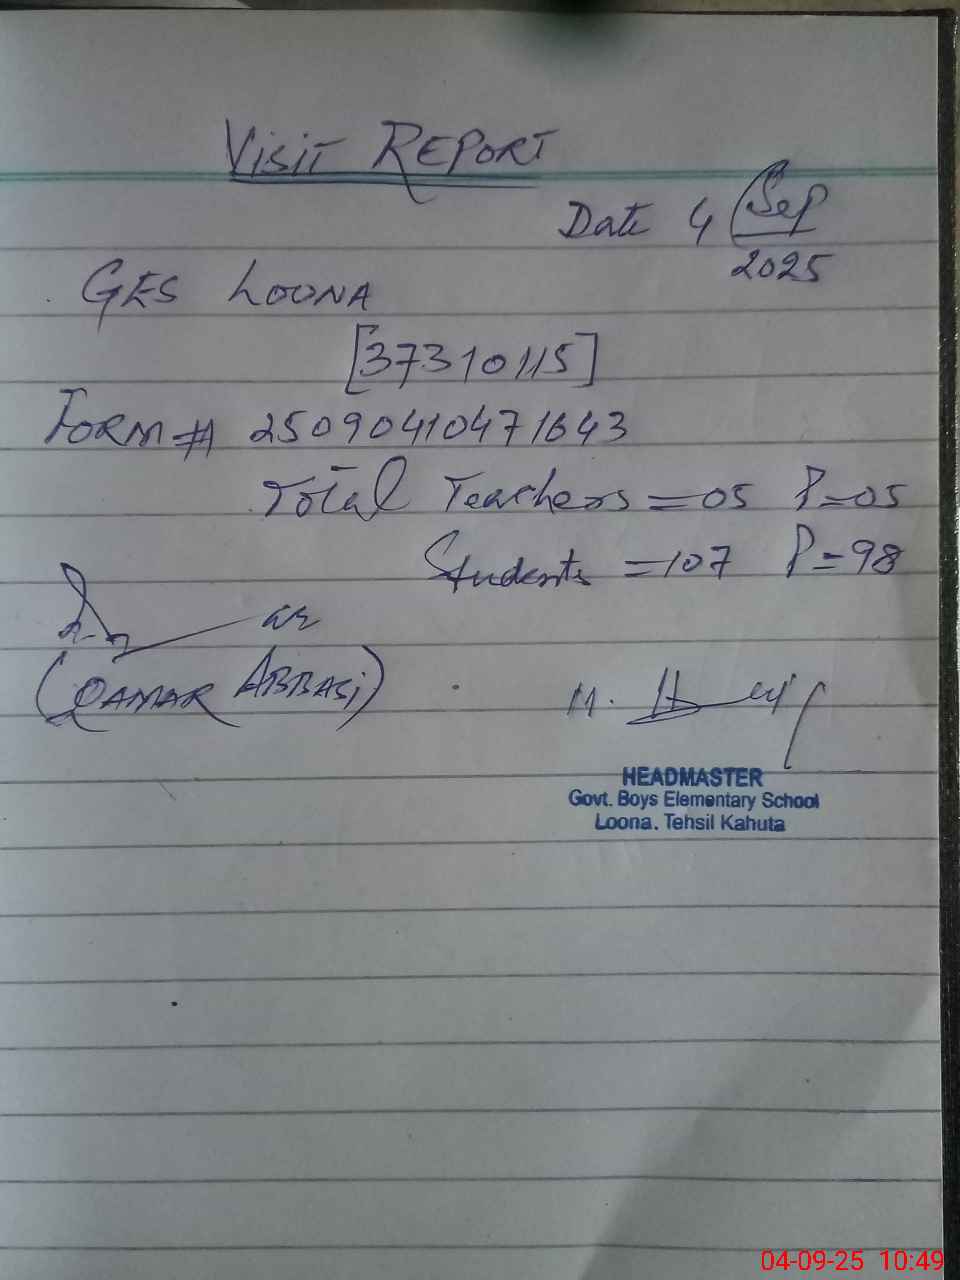 VISIT REPORT
Date 4 Sep
2025
GES LOONA
[37310115]
FORM # 25090410471643
Total Teachers = 05 P=05
Students = 107 P=98
(QAMAR ABBASI)
HEADMASTER
Govt. Boys Elementary School
Loona. Tehsil Kahuta
04-09-25 10:49